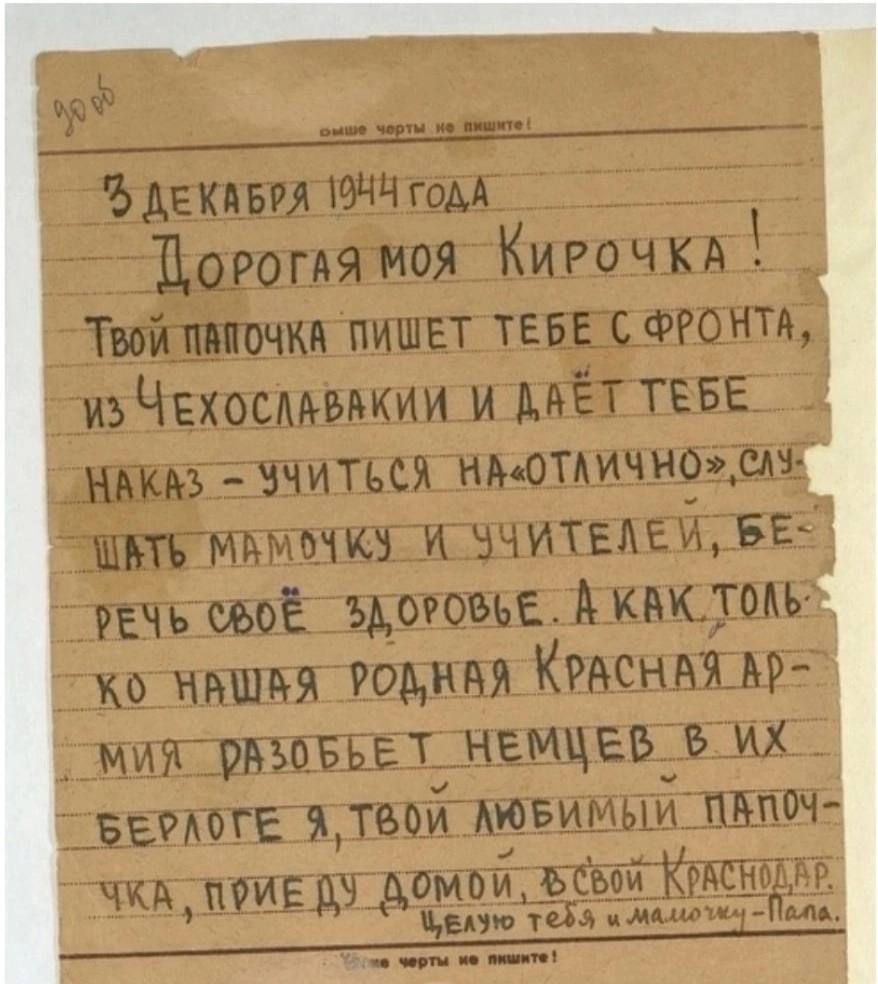 30 об
Выше черты не пишите!
3 ДЕКАБРЯ 1944 ГОДА
ДОРОГАЯ МОЯ КИРОЧКА!
ТВОЙ ПАПОЧКА ПИШЕТ ТЕБЕ С ФРОНТА,
ИЗ ЧЕХОСЛАВАКИИ И ДАЁТ ТЕБЕ
НАКАЗ – УЧИТЬСЯ НА «ОТЛИЧНО», СЛУ-
ШАТЬ МАМОЧКУ И УЧИТЕЛЕЙ, БЕ-
РЕЧЬ СВОЁ ЗДОРОВЬЕ. А КАК ТОЛЬ-
КО НАШАЯ РОДНАЯ КРАСНАЯ АР-
МИЯ РАЗОБЬЕТ НЕМЦЕВ В ИХ
БЕРЛОГЕ Я, ТВОЙ ЛЮБИМЫЙ ПАПОЧ-
ЧКА, ПРИЕДУ ДОМОЙ, В СВОЙ КРАСНОДАР.
ЦЕЛУЮ тебя и мамочку – Папа.
Выше черты не пишите!